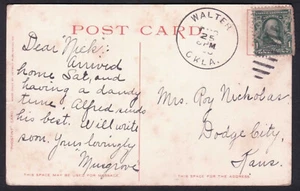 POST CARD
WALTER
25
6PM
OKLA.
Dear "Nick":
Arrived
home Sat, and
having a dandy
time. Alfred sends
his best. Will write
soon. Yours lovingly
Musgrove
Mrs. Roy Nicholas
Dodge City,
Kans.
THIS SPACE MAY BE USED FOR MESSAGE.
THIS SPACE FOR THE ADDRESS.